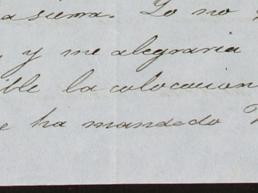 a sierra. Yo no
y me alegraria
ble la colocacion
e ha mandedo